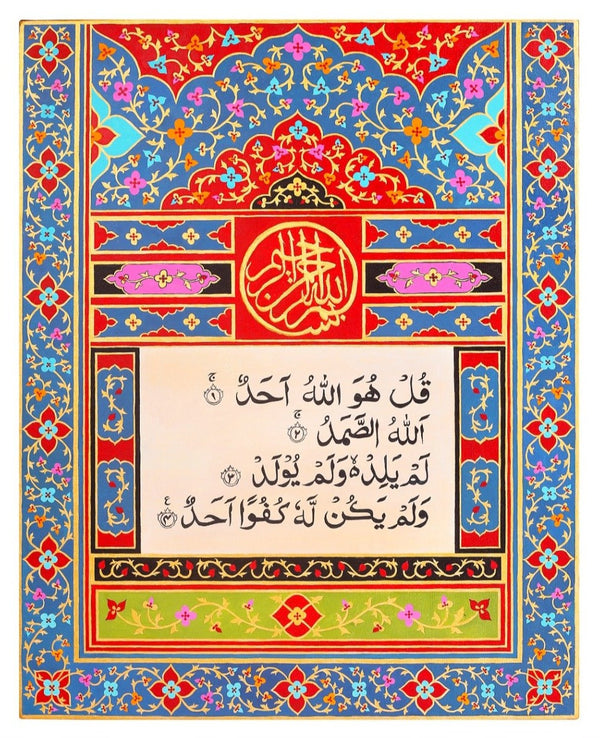 بسم الله الرحمن الرحيم
قُلْ هُوَ اللهُ اَحَدٌ ۚ ۝١
اَللهُ الصَّمَدُ ۚ ۝٢
لَمْ يَلِدْ ۙ وَلَمْ يُوْلَدْ ۝٣
وَلَمْ يَكُنْ لَّهٗ كُفُوًا اَحَدٌ ۝٤ ع